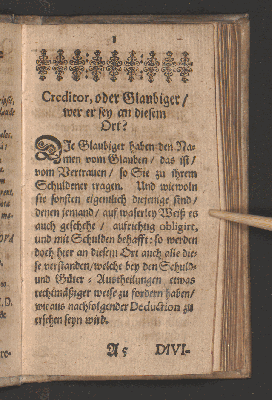 1
Creditor, oder Glaubiger /
wer er sey an diesem
Ort?
DIe Glaubiger haben den Na-
men vom Glauben / das ist /
vom Vertrauen / so Sie zu ihrem
Schuldener tragen. Und wiewoln
sie sonsten eigentlich diejenige sind /
denen jemand / auf waserley Weiß es
auch geschehe / aufrichtig obligirt,
und mit Schulden behafft: so werden
doch hier an diesem Ort auch alle die-
se verstanden / welche bey den Schuld-
und Güter-Austheilungen etwas
rechtmäßiger weise zu fordern haben /
wie aus nachfolgender Deduction zu
ersehen seyn wird.
A 5 DIVI-